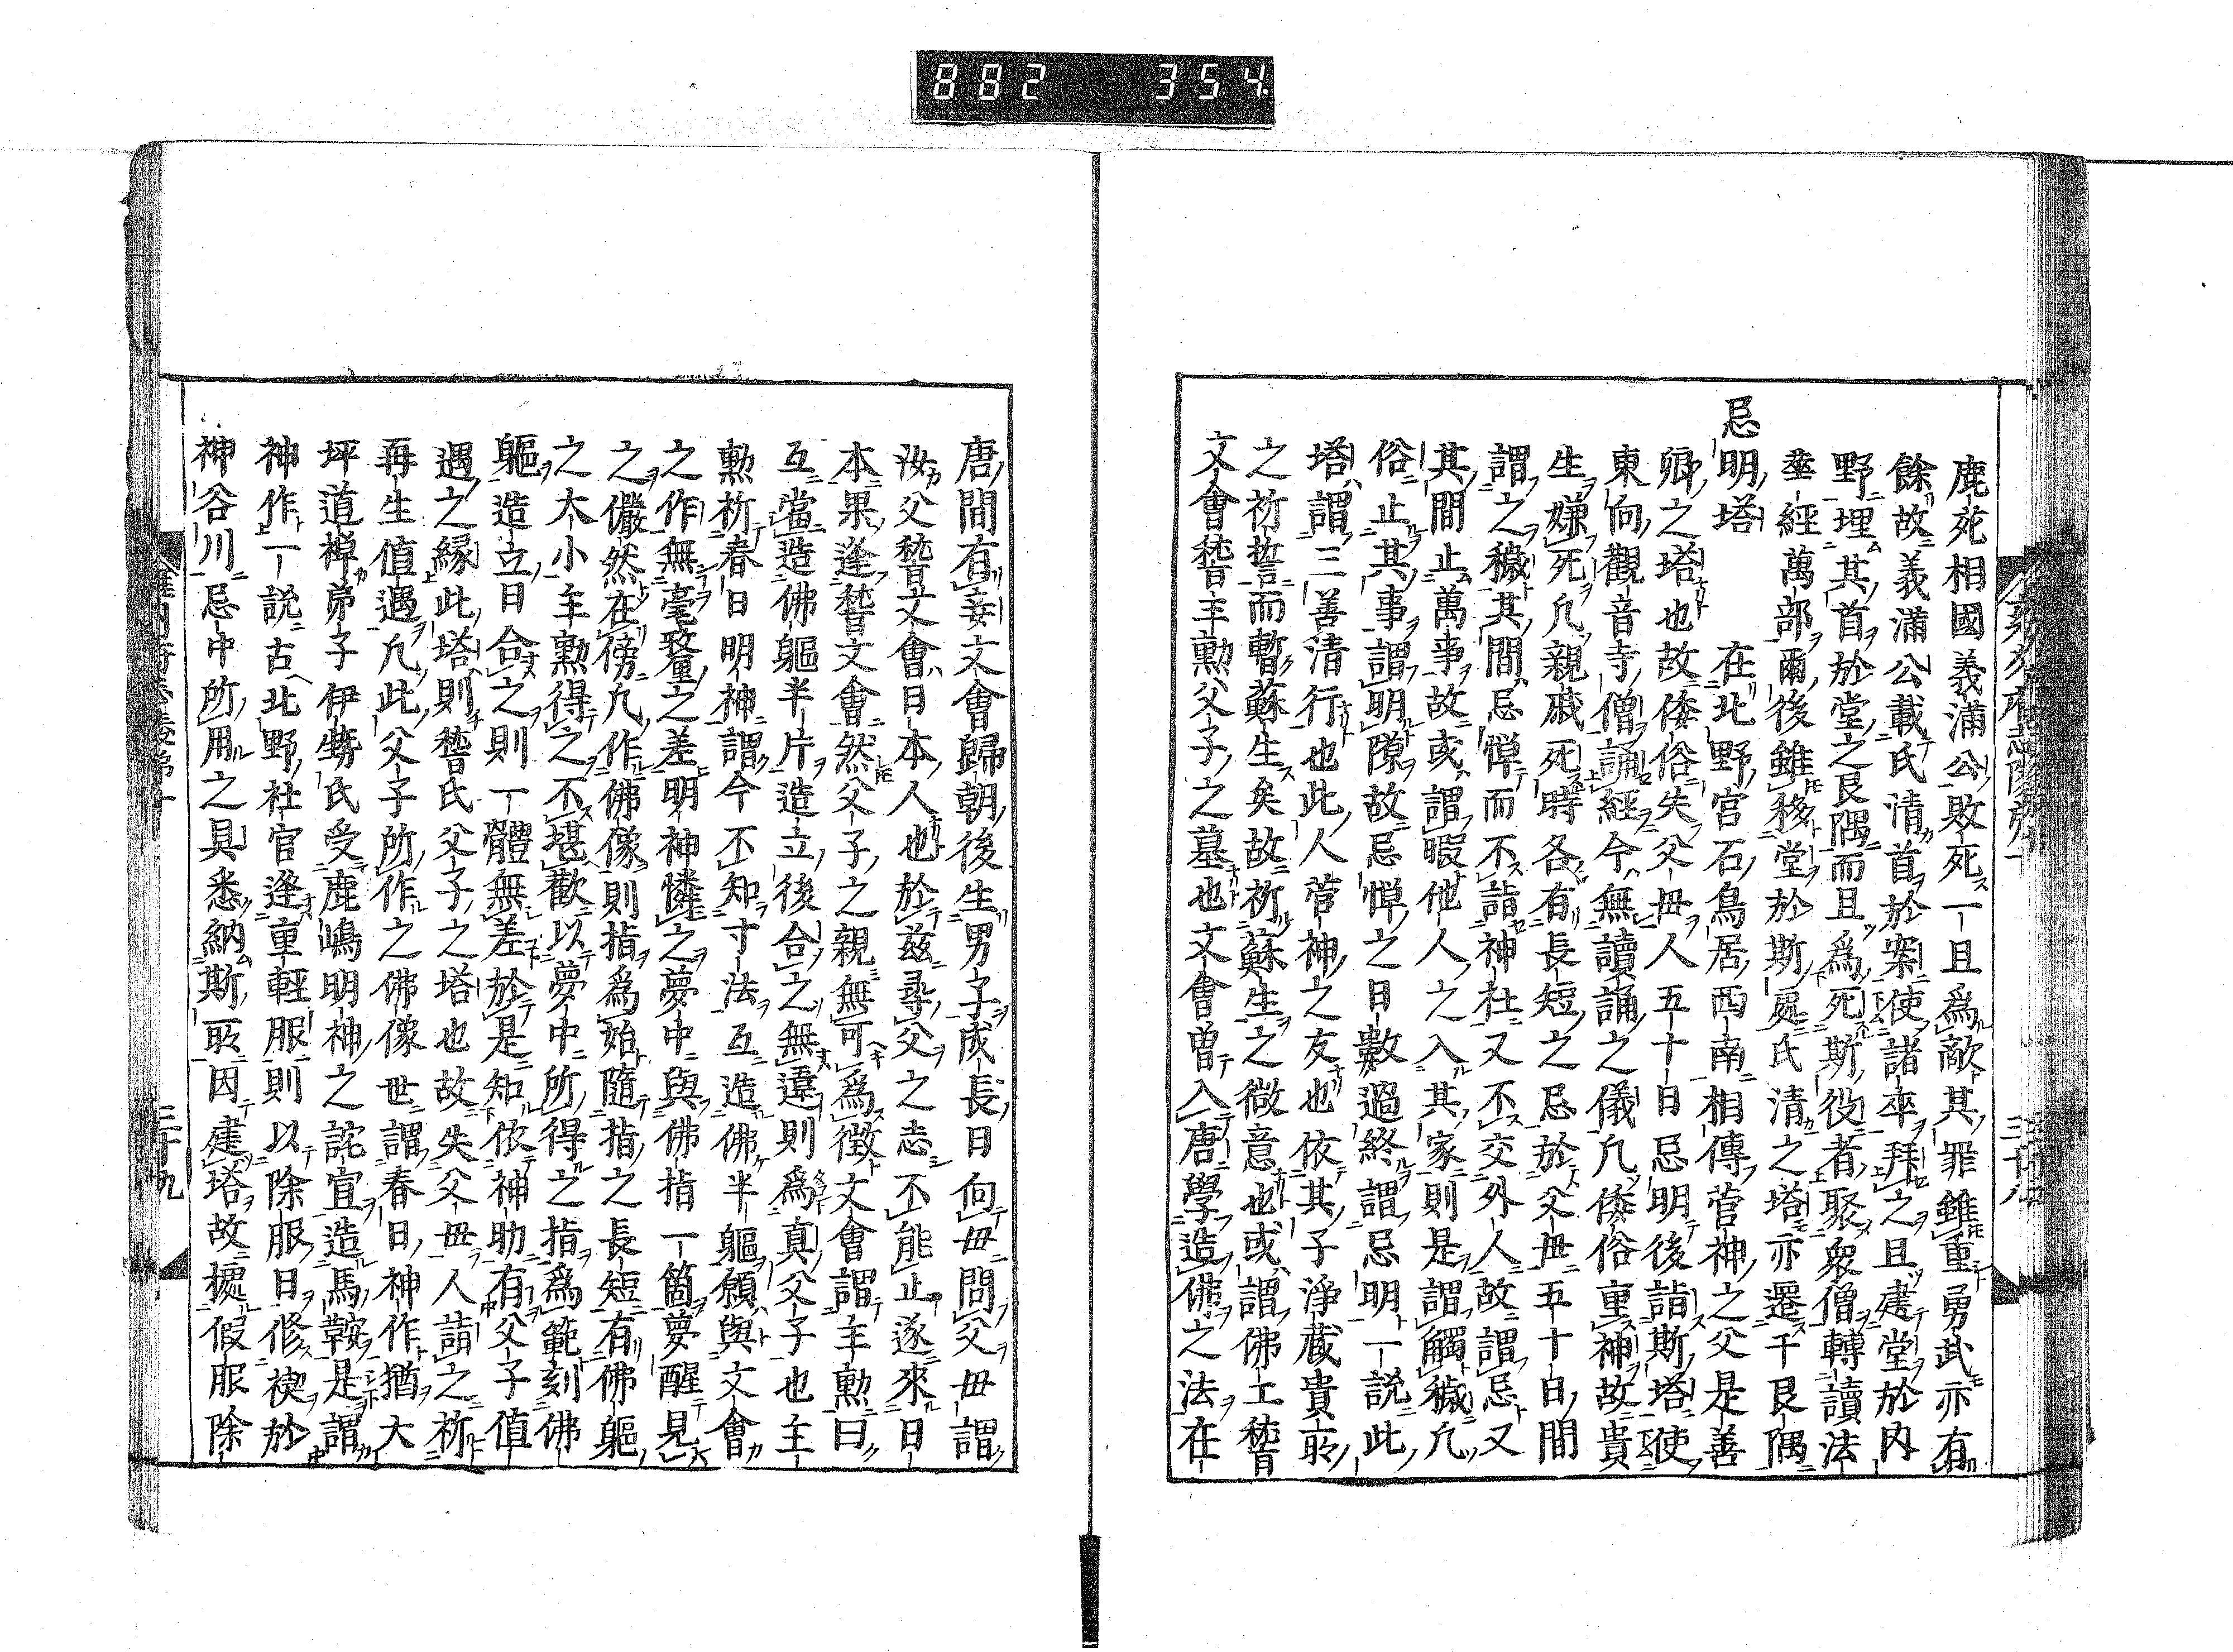 882 354
鹿苑相國義滿公敗死一且爲敵其罪雖重勇武亦有
餘故義滿公載氏清首於案使諸卒拜之且建堂於内
野埋其首於堂之艮隅而且爲死斯役者聚衆僧轉讀法
華經萬部爾後雖移堂於斯處氏清之塔亦遷于艮隅
忌明塔 在北野宮石鳥居西南相傳菅神之父是善
卿之塔也故倭俗失父母人五十日忌明後詣斯塔使
東向觀音寺僧誦經今無讀誦之儀凡倭俗重神故貴
生嫌死凡親戚死時各有長短之忌於父母五十日間
謂之穢其間忌憚而不詣神社又不交外人故謂忌又
其間止萬事故或謂暇他人之入其家則是謂觸穢凡
俗止其事謂明隙故忌憚之日數過終謂忌明一説此
塔謂三善清行也此人菅神之友也依其子淨蔵貴所
之祈誓而暫蘇生矣故祈蘇生之微意也或謂佛工稽
文會稽主勲父子之墓也文會曽入唐學造佛之法在
唐間有妾文會歸朝後生男子成長日向母問父母謂
汝父稽文會日本人也於茲尋父之志不能止遂來日
本果逢稽文會然父子之親無可爲徴文會謂主勲曰
互當造佛軀半片造立後合之無違則爲真父子也主
勲祈春日明神謂今不知寸法互造佛半軀願與文會
之作無毫釐之差明神憐之夢中與佛指一箇夢醒見
之儼然在傍凡作佛像則指爲始隨指之長短有佛軀
之大小主勲得之不堪歡以夢中所得之指爲範刻佛
軀造立日合之則一體無差於是知依神助有父子値
遇之縁此塔則稽氏父子之塔也故失父母人請之祈
再生値遇凡此父子所作之佛像世謂春日神作猶大
坪道禅弟子伊勢氏受鹿嶋明神之託宣造馬鞍是謂
神作一説古北野社官逢重輕服則以除服日修禊於
神谷川忌中所用之具悉納斯所因建塔故擬假服除
三十八
三十九